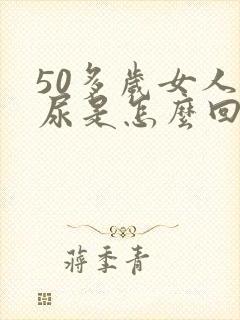 50多歲女人
尿是怎麼回
蔣季青